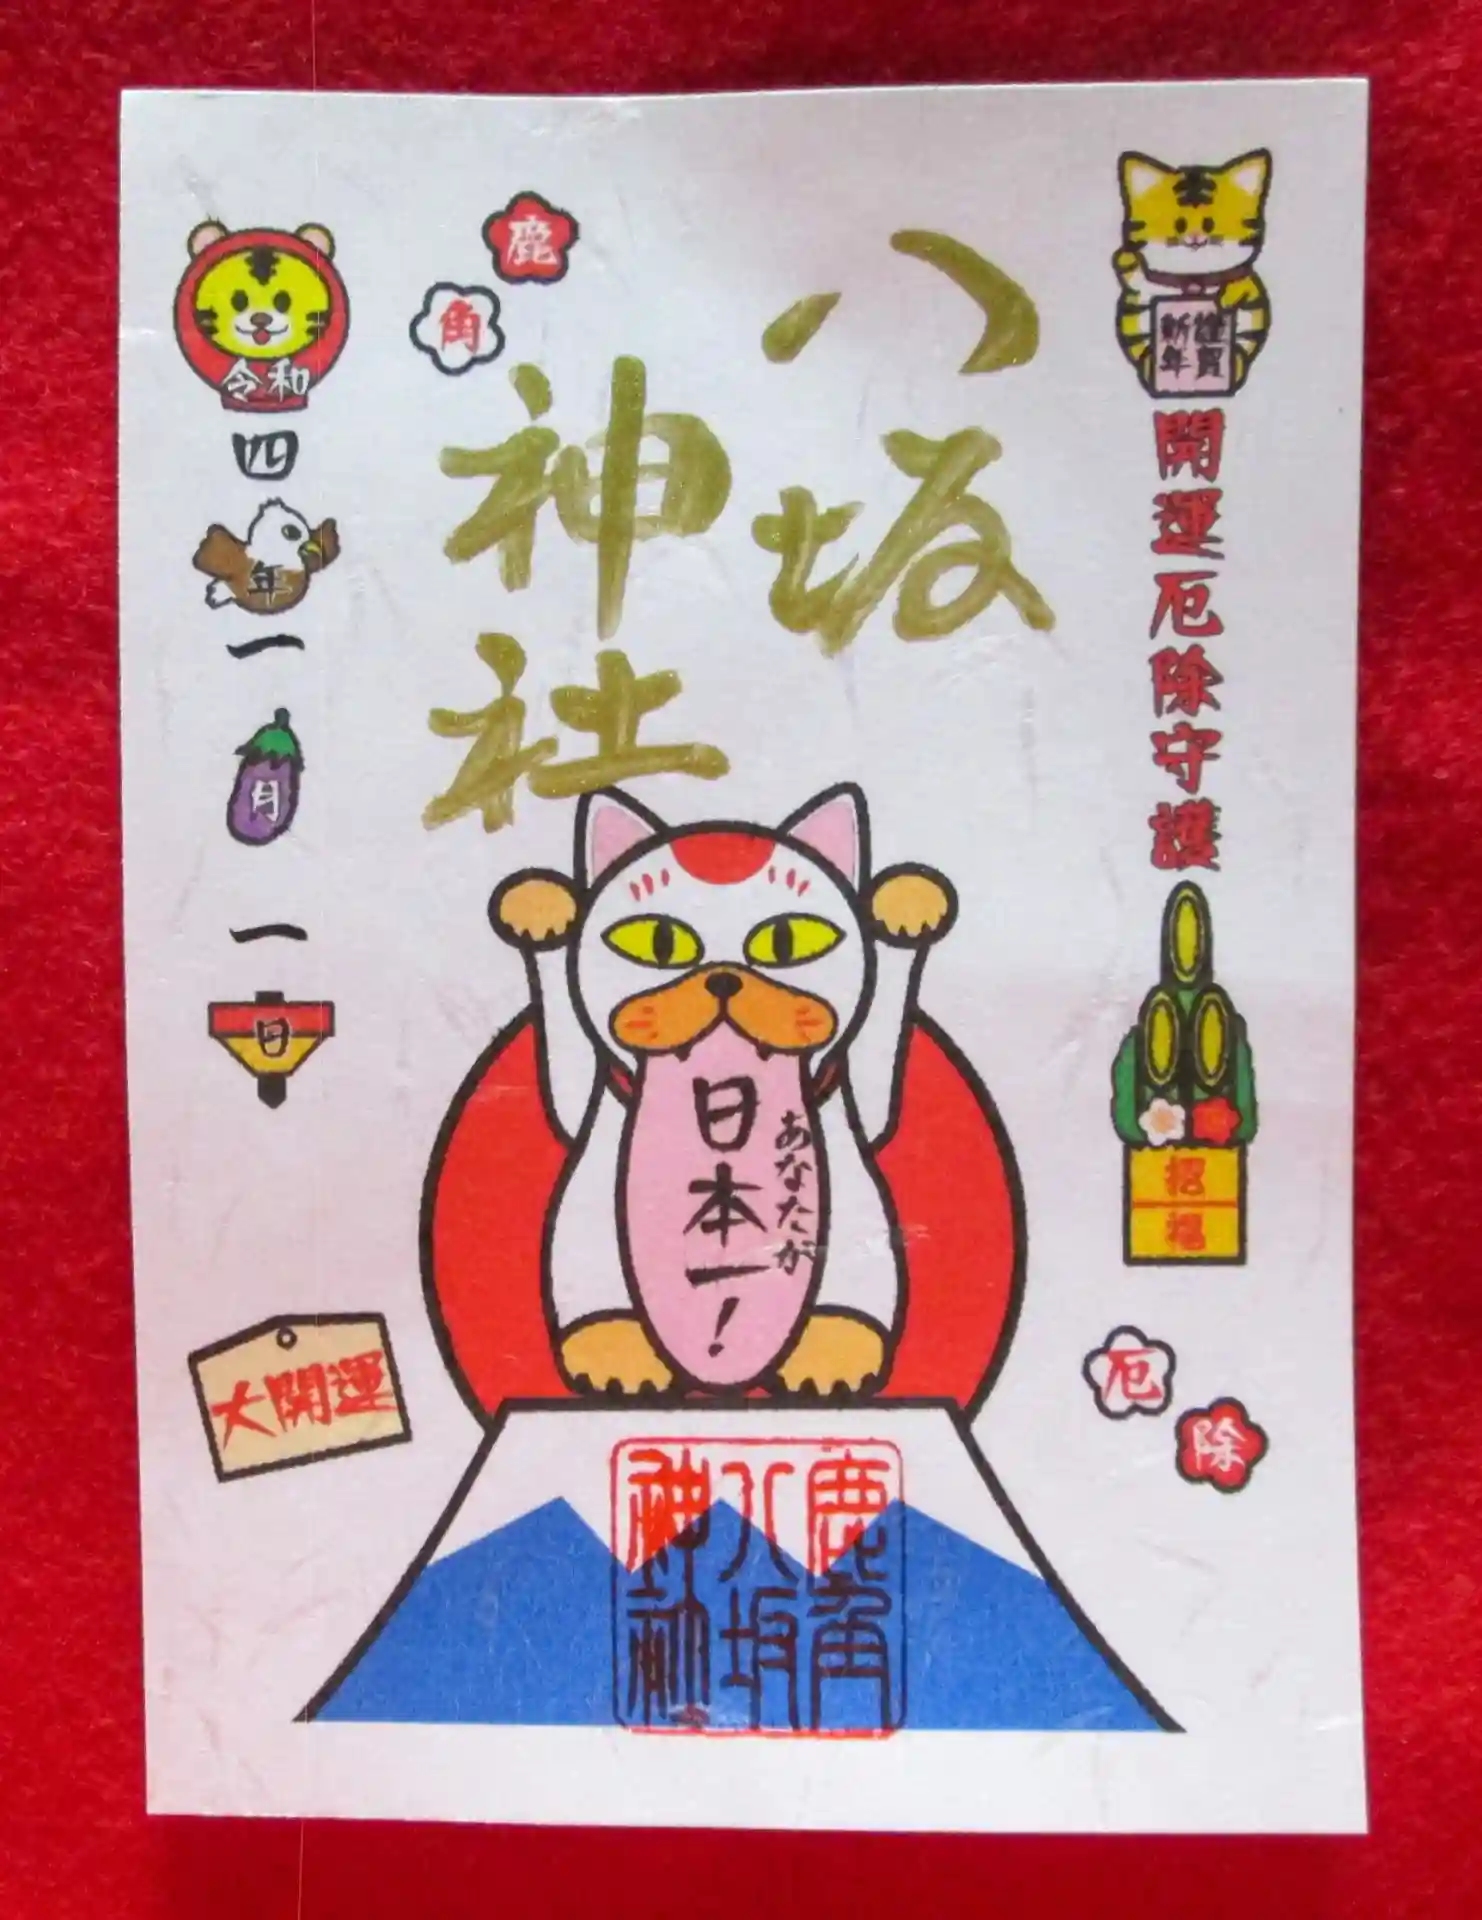 謹賀
新年
開運厄除守護
招福
厄除
八坂
神社
鹿角
あなたが
日本一!
鹿角
八坂
神社
令和
四年
一月
一日
大開運